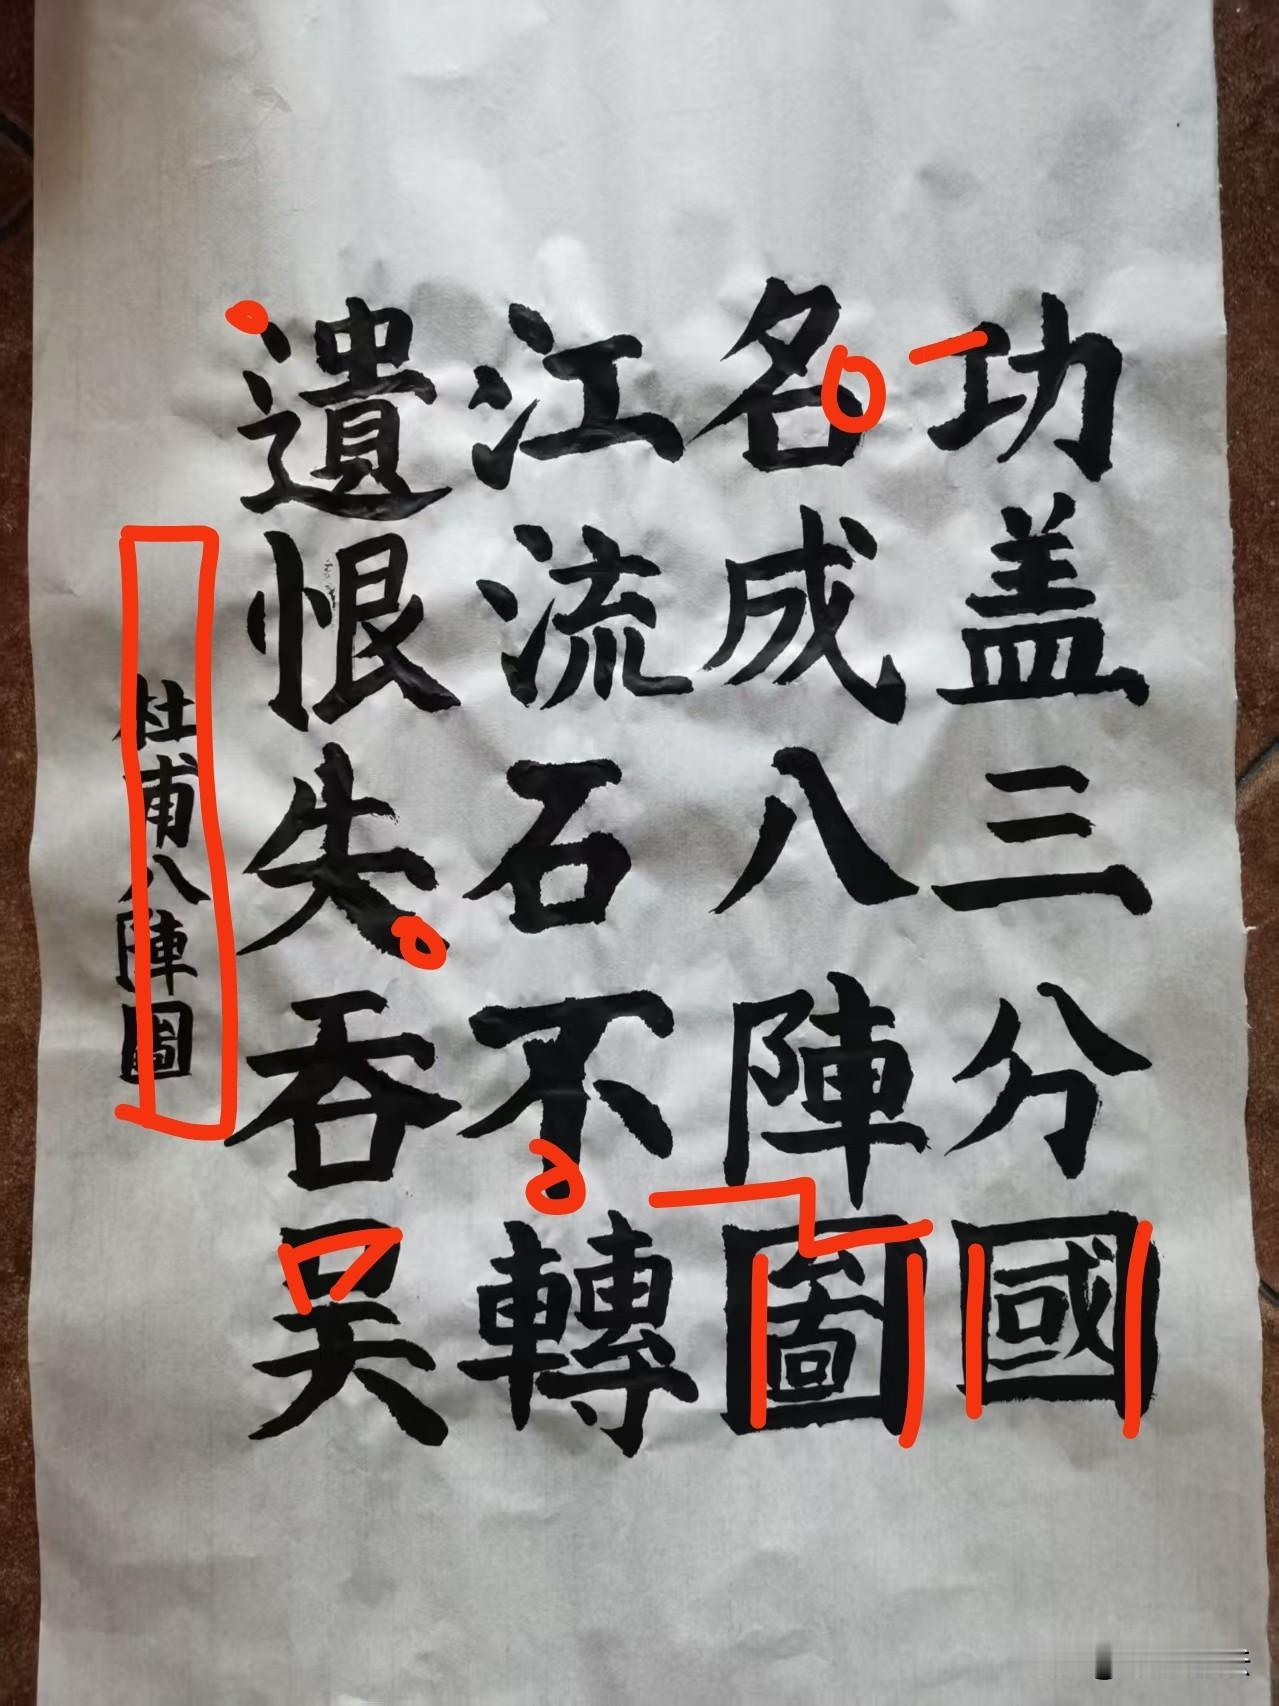 功盖三分國
名成八陣圖
江流石不轉
遺恨失吞吴
杜甫八陣圖